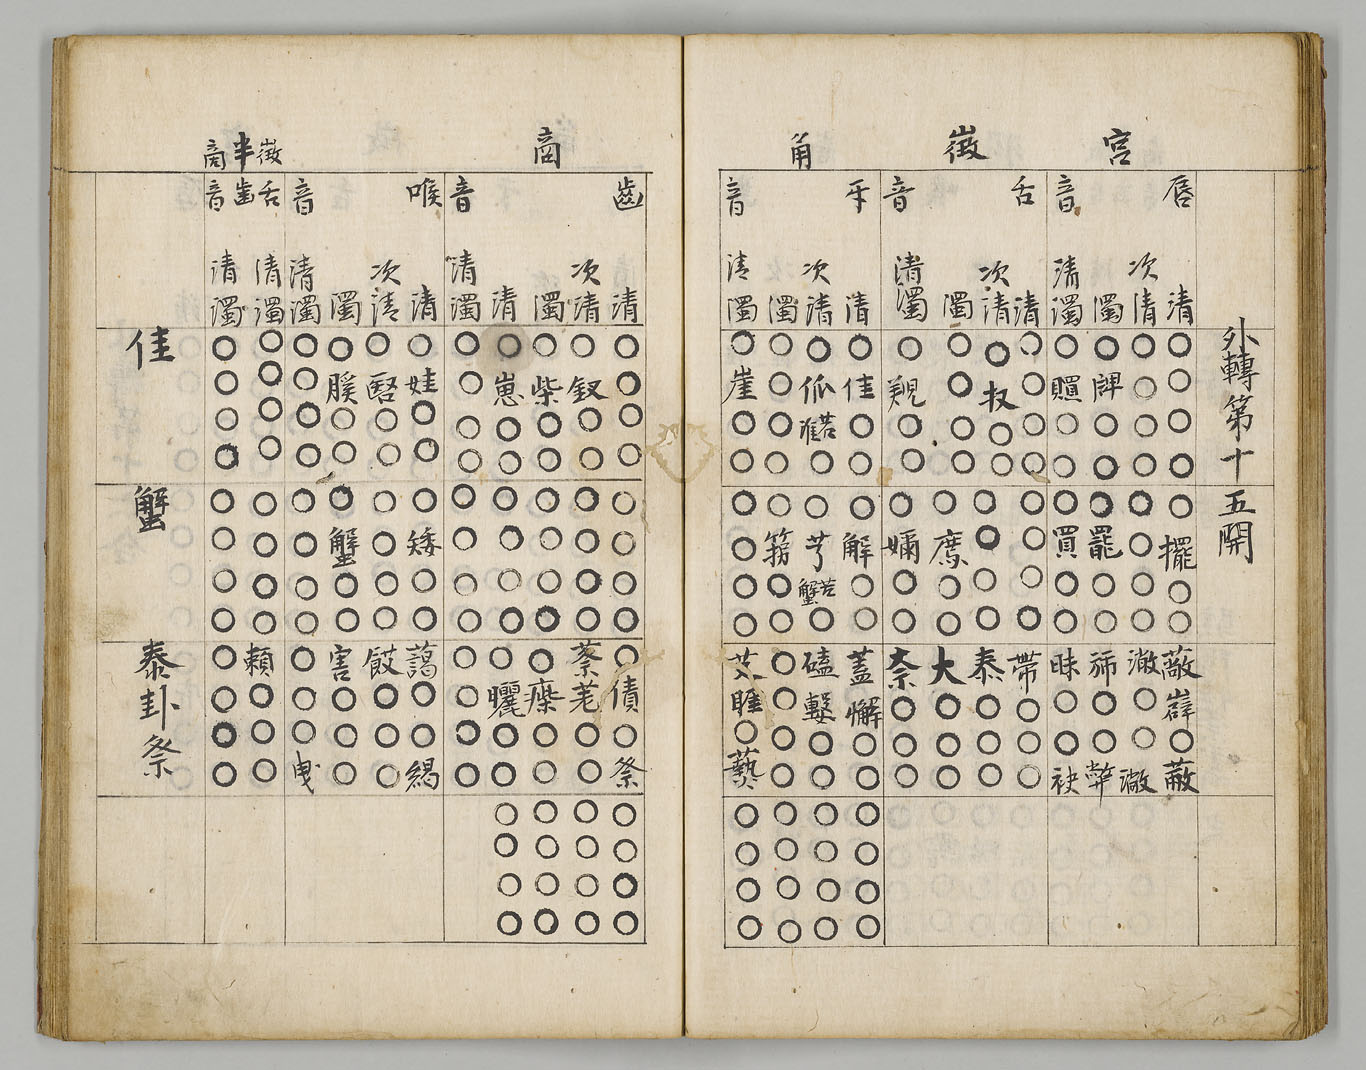 外轉第十五開
宮
唇音
清 ○○○○ ○擺○○ 蔽薜○蔽
次清 ○○○○ ○○○○ 潎○○潎
濁 ○牌○○ ○罷○○ 旆○○弊
清濁 ○○○ ○買○○ 眛○○袂
徵
舌音
清 ○○○○ ○○○○ 帶○○○
次清 ○扠○○ ○○○○ 泰○○○
濁 ○○○○ ○廌○○ 大○○○
清濁 ○○○ ○嬭○○ 柰○○○
角
牙音
清 ○佳○○ ○解○○ 蓋懈○○ ○○○○
次清 ○○ ○芌苦蟹○ 磕○○ ○○○○
濁 ○○○○ ○箉○○ ○○○○ ○○○○
清濁 ○崖○○ ○○○○ 艾睚○藝 ○○○○
商
齒音
清 ○○○○ ○○○○ ○債○祭 ○○○○
次清 ○釵○○ ○○○○ 蔡差○○ ○○○○
濁 ○柴○○ ○○○○ ○瘥○○ ○○○○
清 ○崽○○ ○○○○ ○曬○○ ○○○○
清濁 ○○○○ ○○○○ ○○○○
喉音
清 ○娃○○ ○矮○○ 藹○○緆
次清 ○○○ ○○○○ 餀○○○
濁 ○膎○○ ○蟹○○ 害○○○
清濁 ○○○○ ○○○○ ○○○曳
徵半商
舌齒音
清濁 ○○○○ ○○○○ 賴○○○
清濁 ○○○○ ○○○○ ○○○○
佳
蟹
泰卦祭